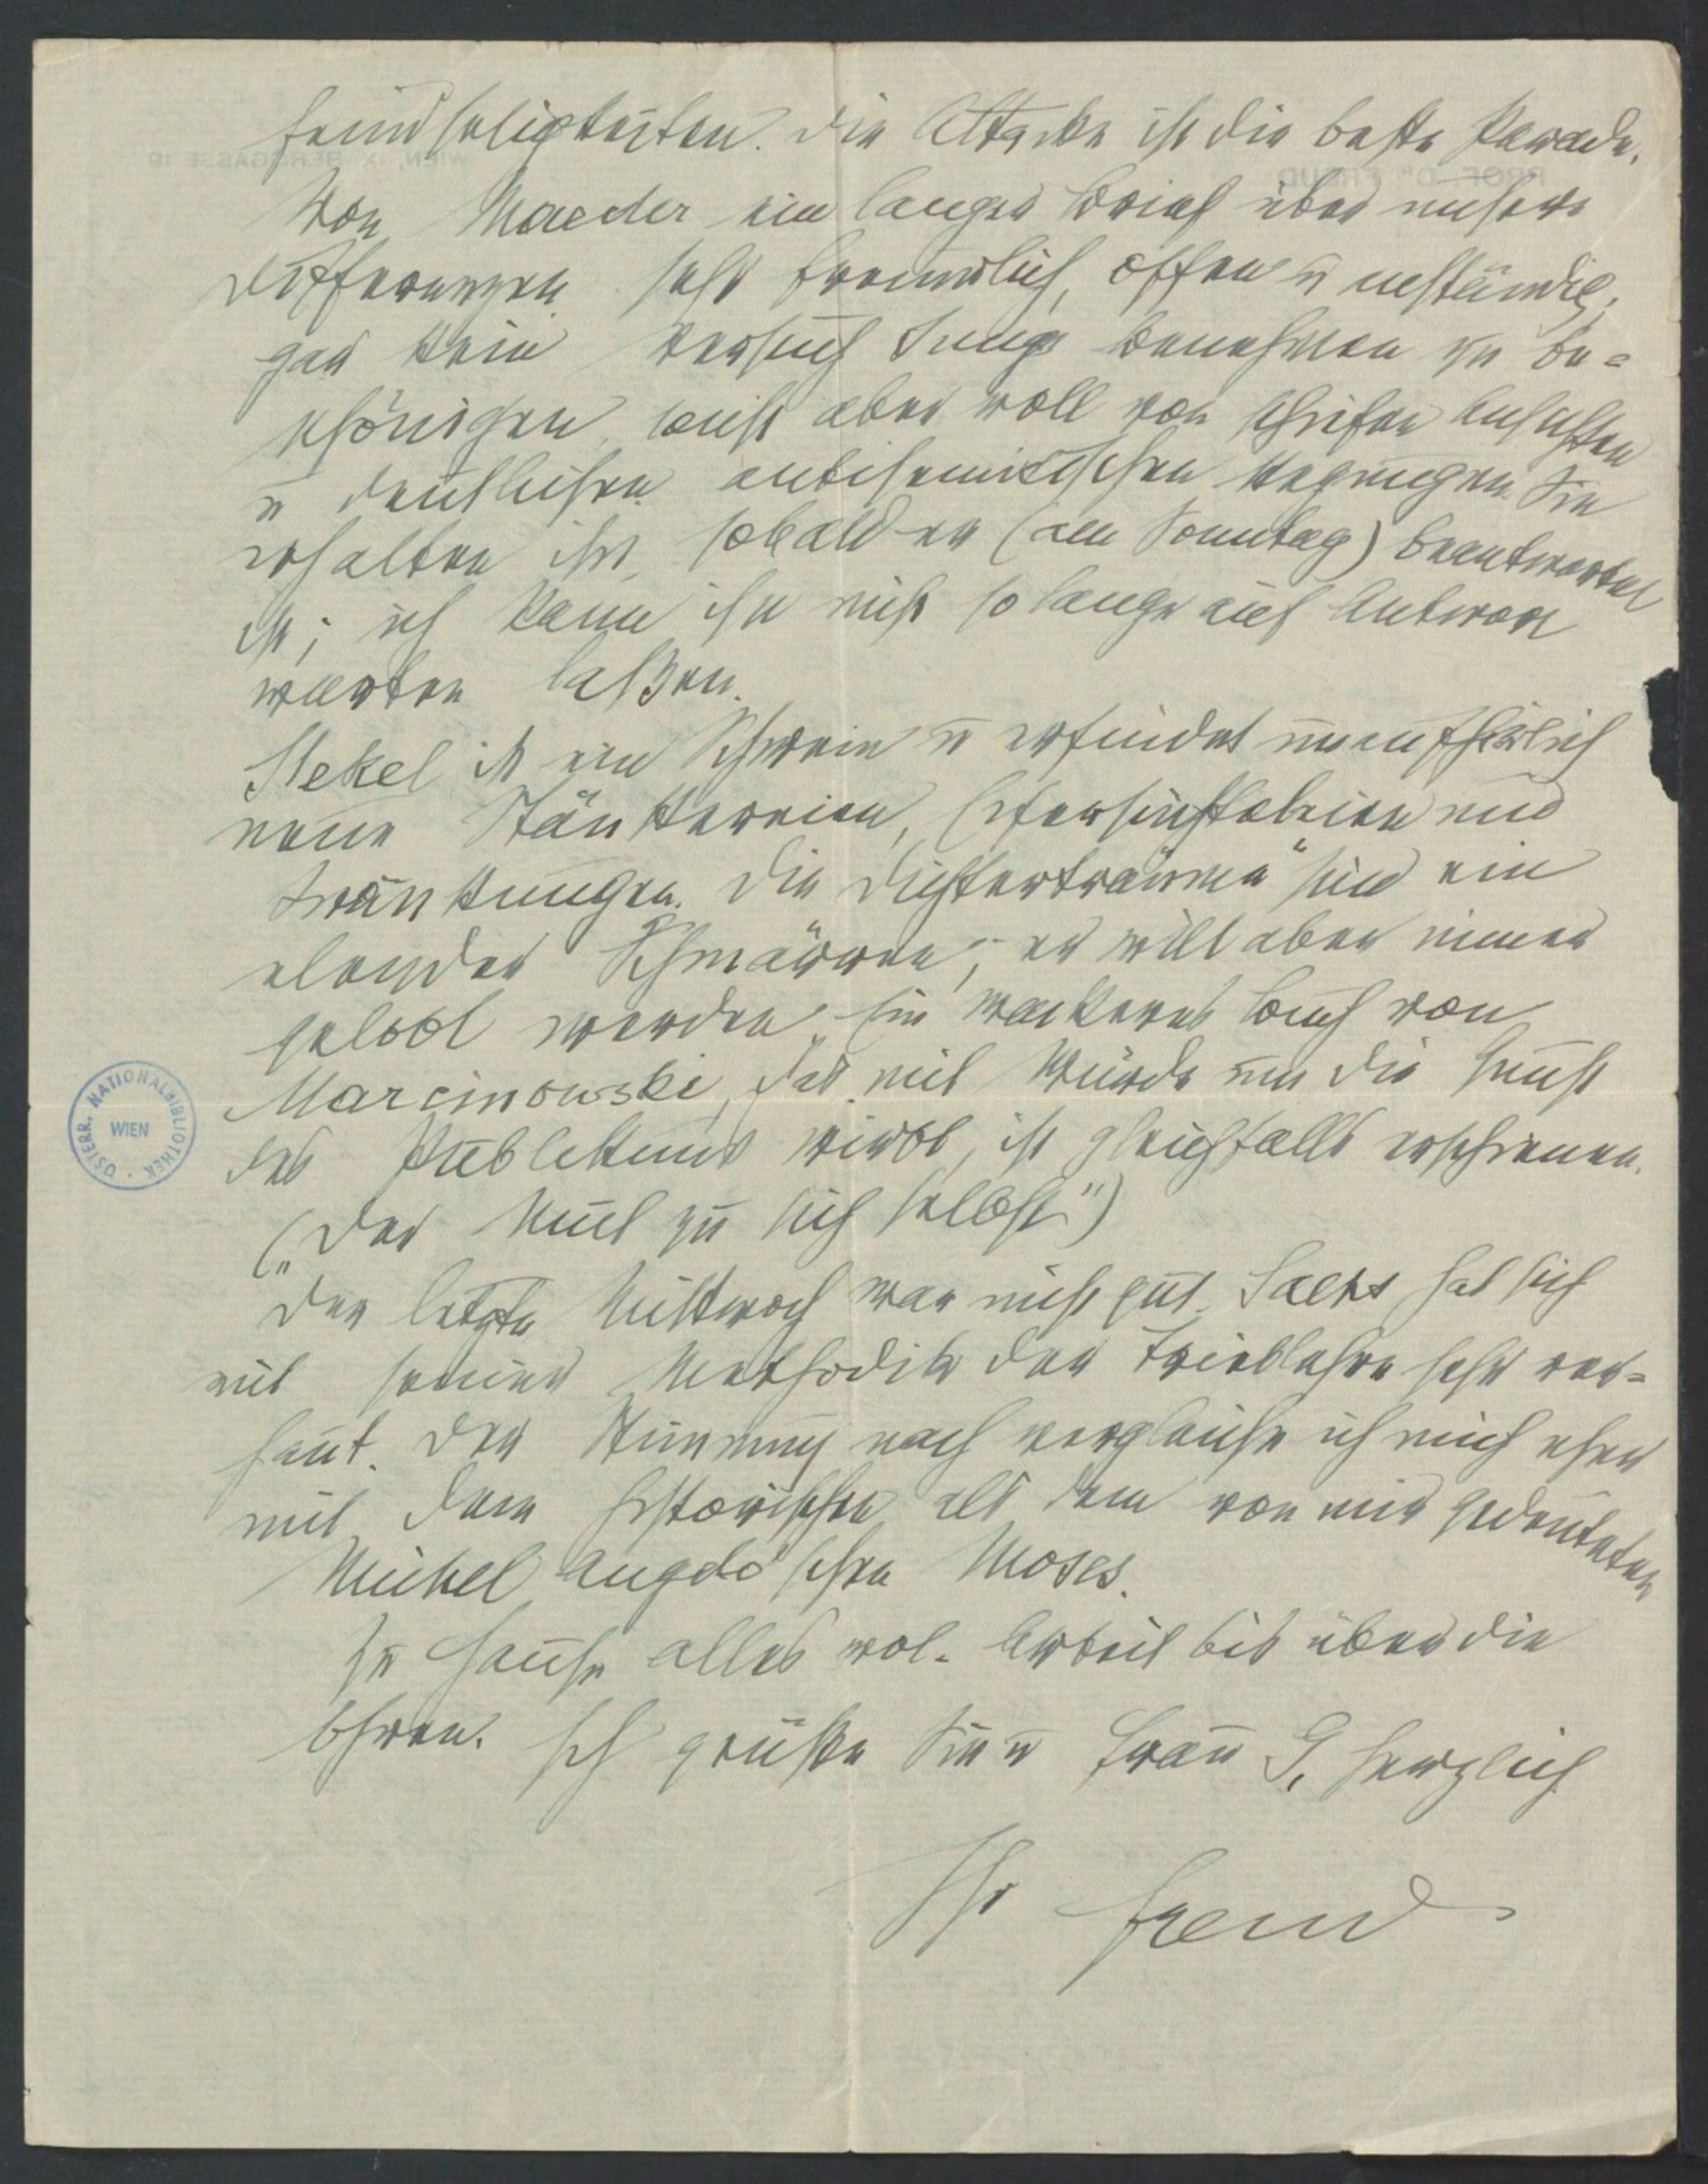 Feindseligkeiten. Die Attacke ist die beste Parade.
Von Maeder ein langer Brief über unsere
Differenzen, sehr freundlich, offen u anständig,
gar kein Versuch Jungs Benehmen zu be-
schönigen, sonst aber voll von schiefen Ansichten
u deutlichen antisemitischen Regungen. Sie
erhalten ihn, sobald er (am Sonntag) beantwortet
ist; ich kann ihn nicht so lange auf Antwort
warten laßen.
Stekel ist ein Schwein u erfindet unaufhörlich
neue Stänkereien, und
Kränkungen. Die „Dichterträume“ sind ein
elender Schmarren, er will aber immer
gelobt werden. Ein wackeres Buch von
Marcinowski, das mit Würde um die Gunst
des Publikums wirbt, ist gleichfalls erschienen.
(„Der Mut zu sich selbst“)
Der letzte Mittwoch war nicht gut. Sachs hat sich
mit seiner Methodik der Trieblehre sehr ver-
haut. Der Stimmung nach vergleiche ich mich eher
mit dem historischen als dem von mir gedeuteten
Michel Angelo'schen Moses.
Zu Hause alles wol. Arbeit bis über die
Ohren. Ich grüße Sie u Frau G. herzlich
Ihr Freud
PROF. DR. FREUD
WIEN, IX. BERGGASSE 19
ÖSTERR. NATIONALBIBLIOTHEK · WIEN